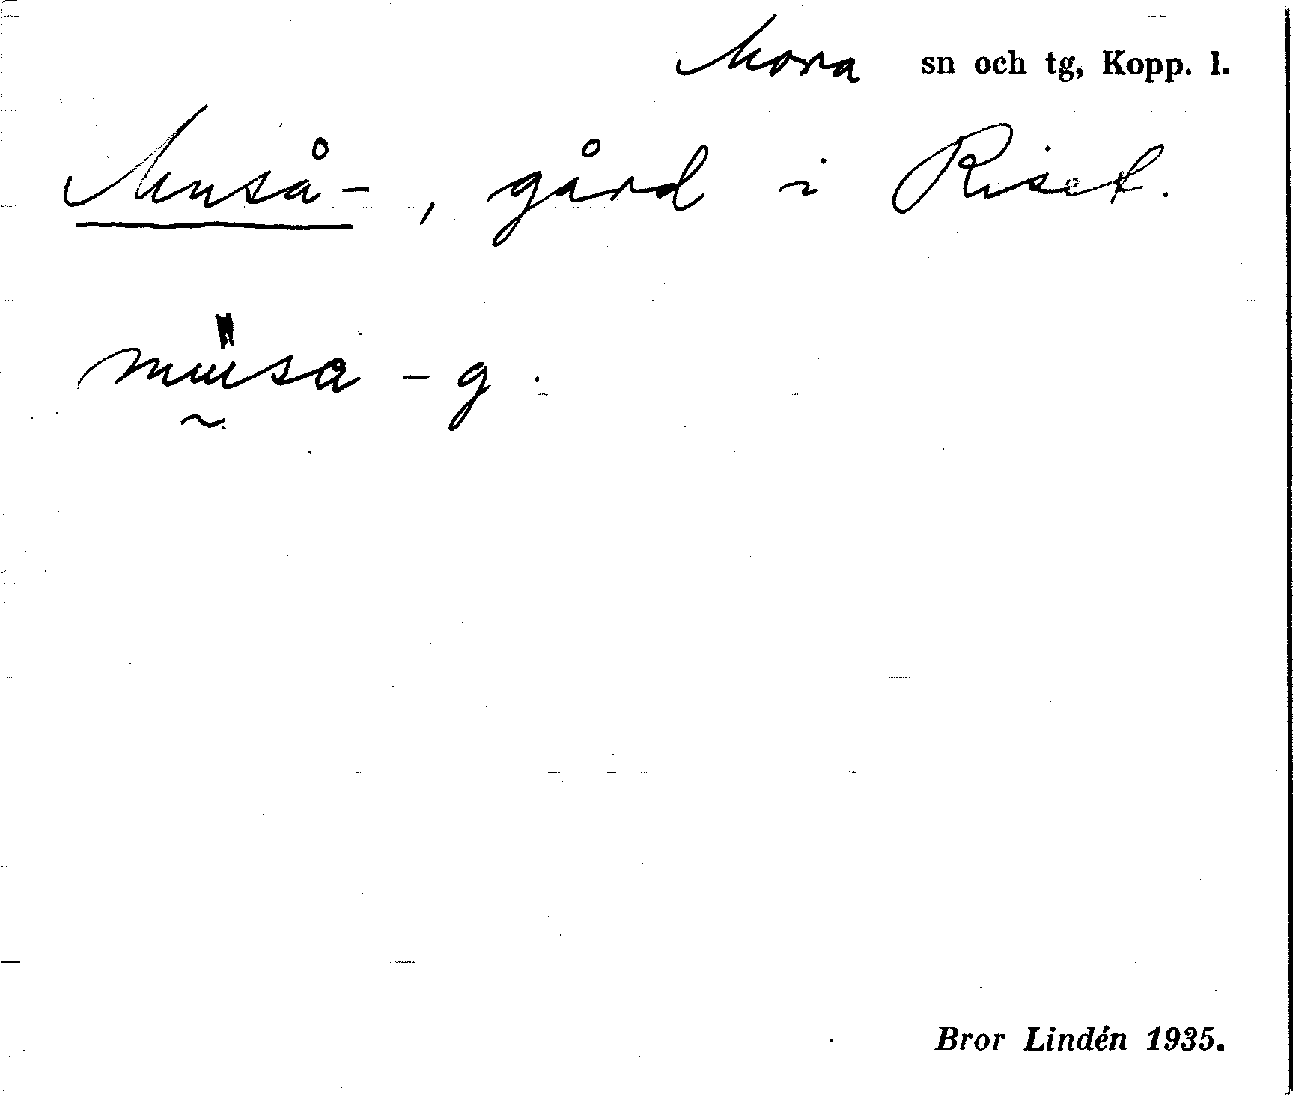 Mora sn och tg, Kopp. l.
Muså-, gård i Riset.
mūsa - g.
Bror Lindén 1935.